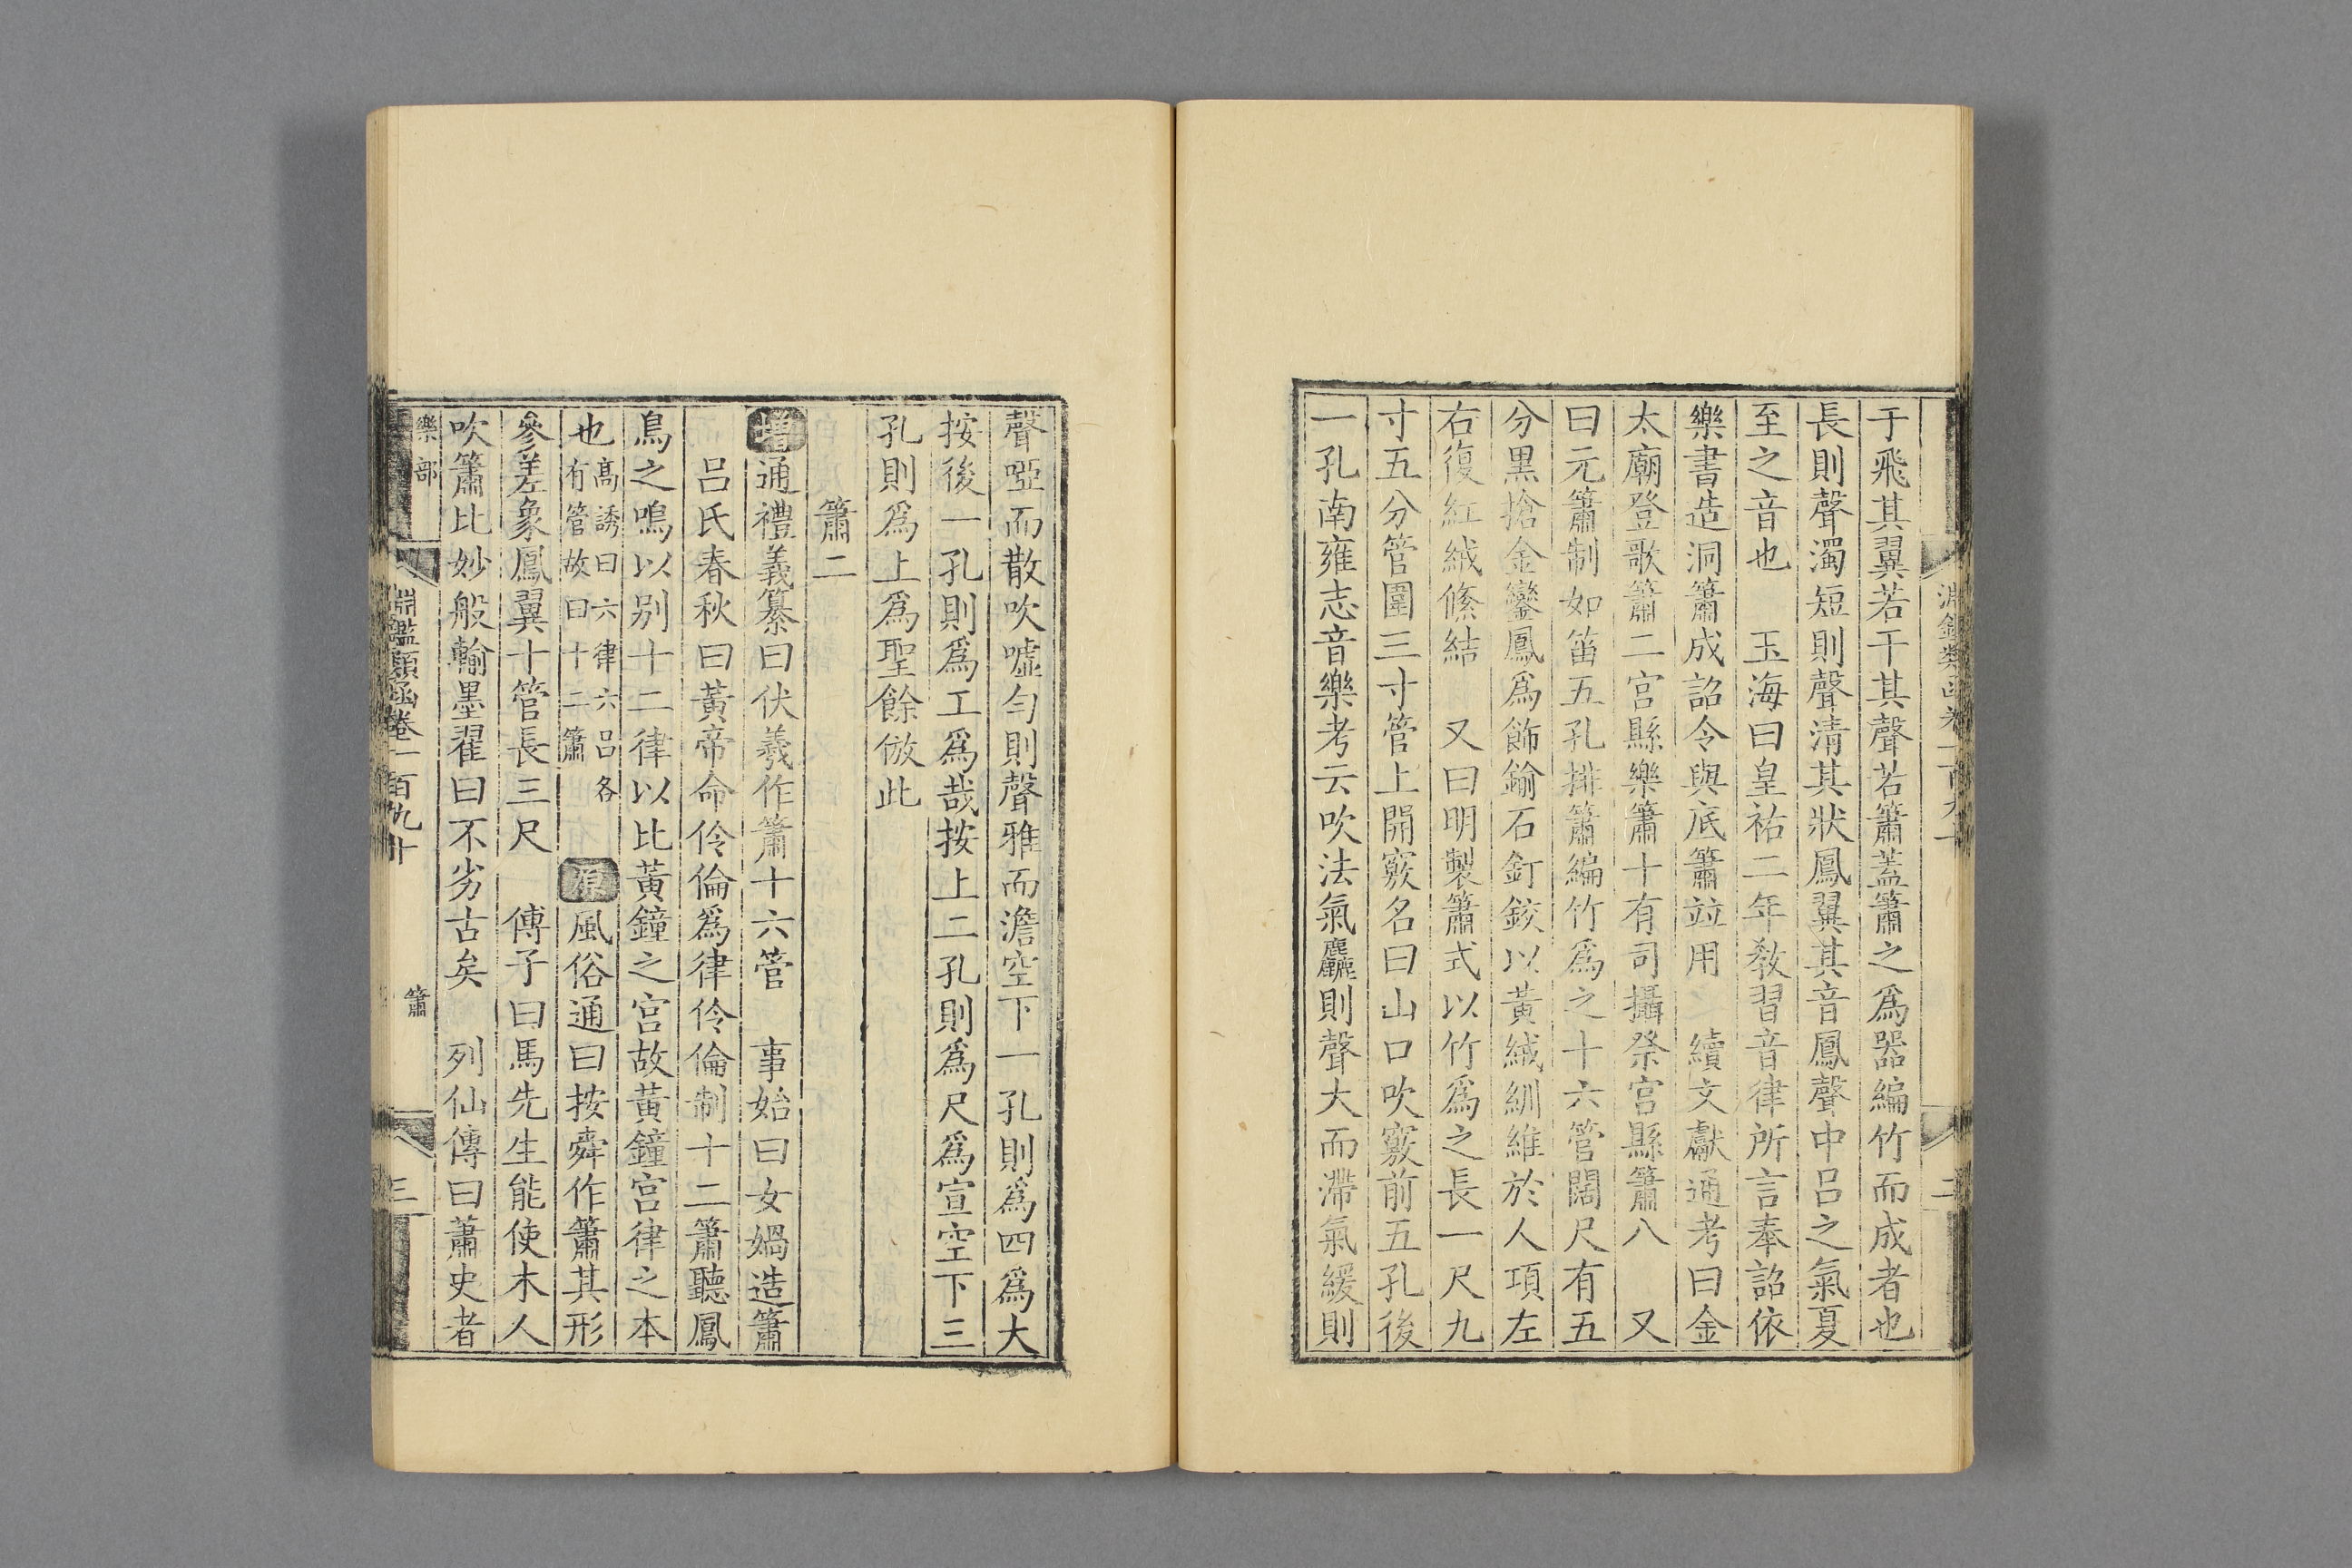 于飛其翼若干其聲若簫蓋簫之爲器編竹而成者也
長則聲濁短則聲清其狀鳳翼其音鳳聲中呂之氣夏
至之音也　玉海曰皇祐二年敎習音律所言奉詔依
樂書造洞簫成詔令與底簫竝用　續文獻通考曰金
太廟登歌簫二宮縣樂簫十有司攝祭宮縣簫八　又
曰元簫制如笛五孔排簫編竹爲之十六管闊尺有五
分黑搶金鑾鳳爲飾鍮石釘鉸以黃絨紃維於人項左
右復紅絨絛結　又曰明製簫式以竹爲之長一尺九
寸五分管圍三寸管上開竅名曰山口吹竅前五孔後
一孔南雍志音樂考云吹法氣麤則聲大而滯氣緩則
聲啞而散吹噓勻則聲雅而澹空下一孔則爲四爲大
按後一孔則爲工爲哉按上二孔則爲尺爲宣空下三
孔則爲上爲聖餘倣此
簫二
增通禮義纂曰伏羲作簫十六管　事始曰女媧造簫
呂氏春秋曰黃帝命伶倫爲律伶倫制十二簫聽鳳
鳥之鳴以別十二律以比黃鐘之宮故黃鐘宮律之本
也高誘曰六律六呂各有管故曰十二簫　原風俗通曰按舜作簫其形
參差象鳳翼十管長三尺　傅子曰馬先生能使木人
吹簫比妙般輸墨翟曰不劣古矣　列仙傳曰蕭史者
樂部　淵鑑類函卷一百九十　簫　三